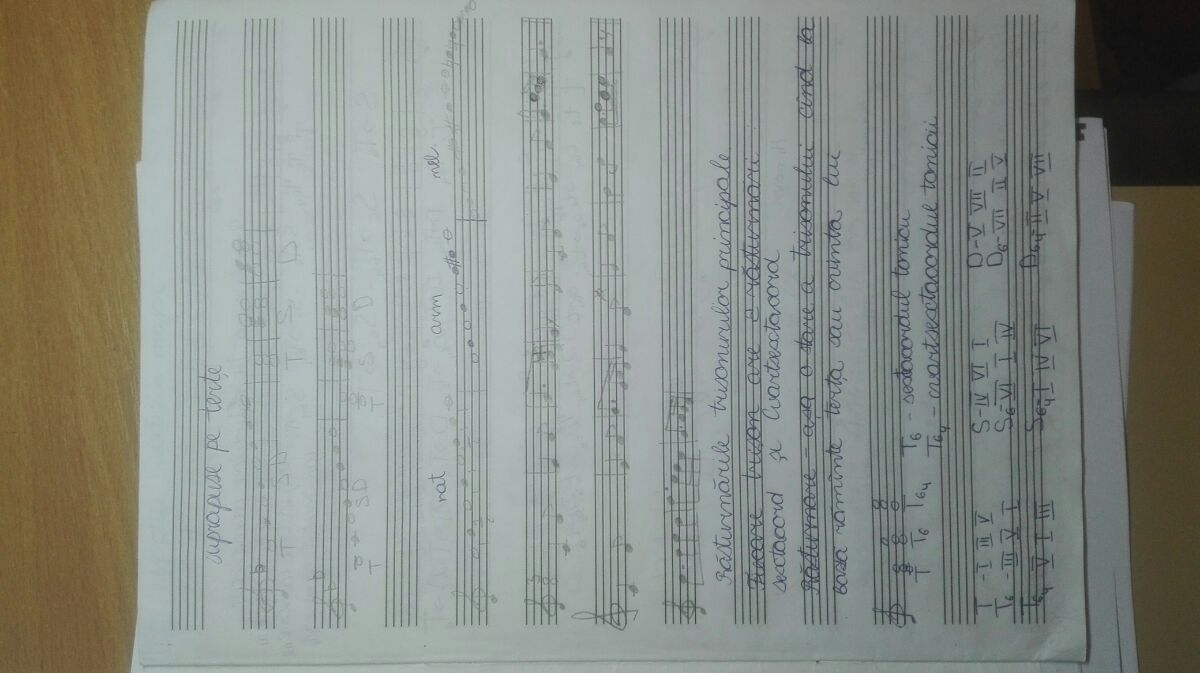 suprapuse pe terțe
T S D T S D
T S D T S D
nat arm mel.
Răsturnările trisonurilor principale
Fiecare trison are 2 răsturnări
sextacord și Cvartsextacord
Răsturnare - așa o stare a trisonului cînd la
baza rămînte terța sau cvinta lui
T T6 T64 T6 - sextacordul tonicii
T64 - cvartsextacordul tonicii
T - I III V S - IV VI I D - V VII II
T6 - III V I S6 - VI I IV D6 - VII II V
T64 V I III S64 - I IV VI D64 - II V VII